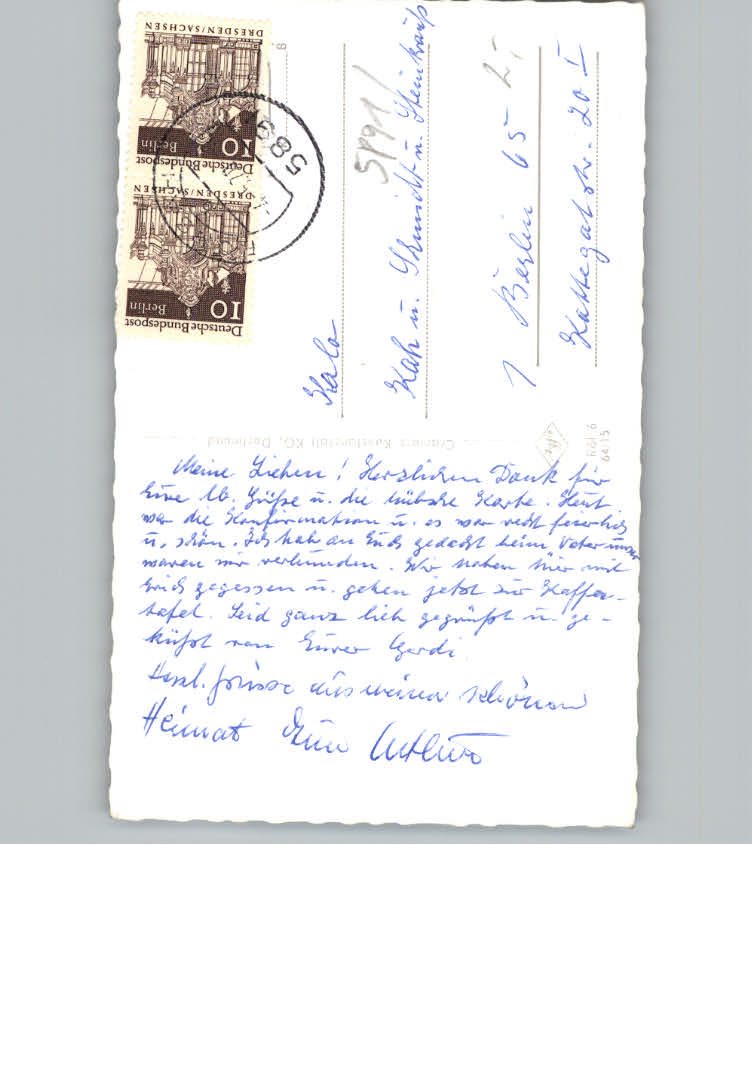 Meine Lieben! Herzlichen Dank für
Eure lb. Grüße u. die hübsche Karte. Heut
war die Konfirmation u. es war recht feierlich
u. schön. Ich hab an Euch gedacht beim Vater unser
waren wir verbunden. Wir haben hier mit
Erich gegessen u. gehen jetzt zur Kaffee-
tafel. Seid ganz lieb gegrüßt u. ge-
küßt von Eurer Gerdi.
Herzl. Grüsse aus meiner schönen
Heimat Euer
Kah u. Schmidt u. Steinkrauß
1 Berlin 65
Kattegatstr. 20 I
5891/
2,-
Cramers Kunstanstalt KG, Dortmund
Rбl 6
6415
DRESDEN/SACHSEN
10
Deutsche Bundespost
Berlin
DRESDEN/SACHSEN
10
Deutsche Bundespost
Berlin
589